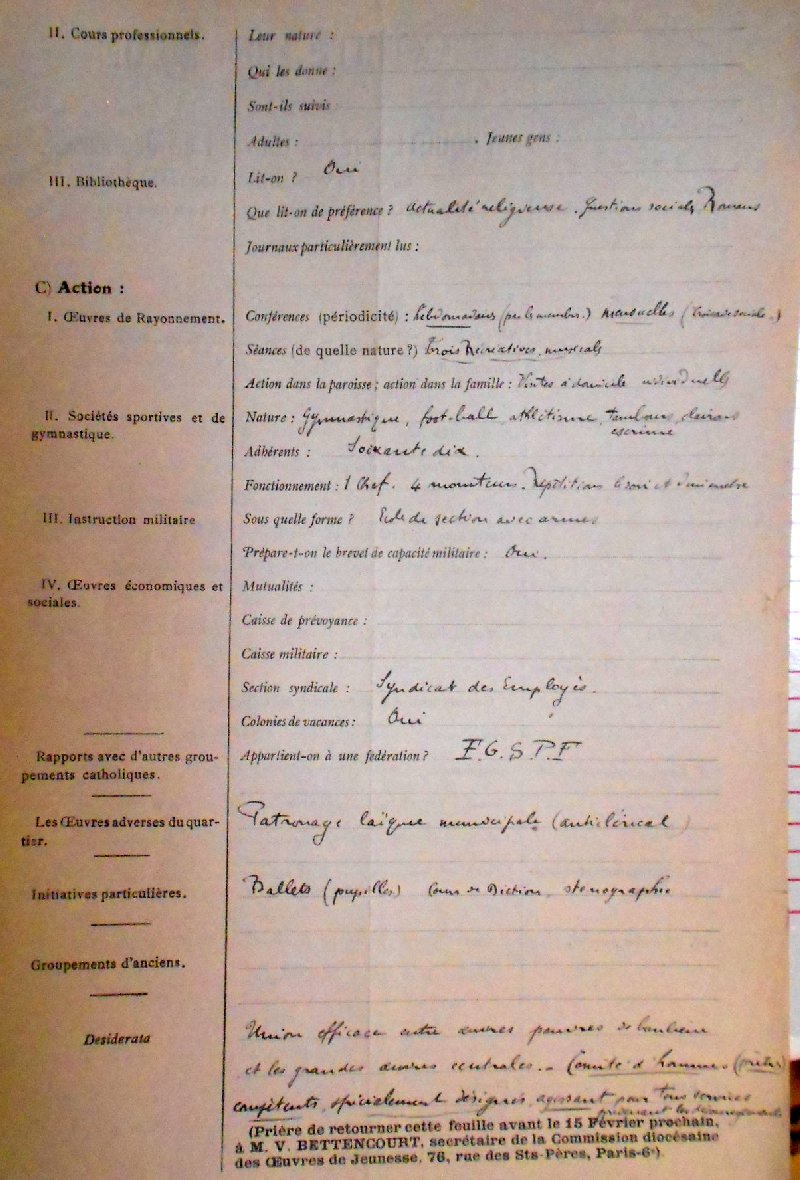 II. Cours professionnels. Leur nature :
Qui les donne :
Sont-ils suivis :
Adultes : . Jeunes gens :
III. Bibliothèque. Lit-on ? Oui
Que lit-on de préférence ? actualité religieuse. Questions sociales Romans
Journaux particulièrement lus :
C) Action :
I. Œuvres de Rayonnement. Conférences (périodicité) : hebdomadaires ( membres.) mensuelles
Séances (de quelle nature ?) Trois Récréatives, musicales
Action dans la paroisse ; action dans la famille : à domicile individuelles
II. Sociétés sportives et de gymnastique. Nature : Gymnastique, foot-ball, athlétisme, tambours, clairons
escrime
Adhérents : Soixante dix.
Fonctionnement : 1 Chef. 4 moniteurs. Répétitions le soir et
III. Instruction militaire Sous quelle forme ? Ecole de section avec armes
Prépare-t-on le brevet de capacité militaire : Oui.
IV. Œuvres économiques et sociales. Mutualités :
Caisse de prévoyance :
Caisse militaire :
Section syndicale : Syndicat des Employés.
Colonies de vacances : Oui
Rapports avec d'autres groupements catholiques. Appartient-on à une fédération ? F.G.S.P.F
Les Œuvres adverses du quartier. Patronage laïque municipale (anticlérical)
Initiatives particulières. Ballets (pupilles) Cours de Diction. sténographie
Groupements d'anciens.
Desiderata Union efficace entre œuvres pauvres de banlieue
et les grandes œuvres centrales. Comité d'hommes
compétents, spécialement désignés, agissant pour tous services
(Prière de retourner cette feuille avant le 15 Février prochain,
à M. V. BETTENCOURT, secrétaire de la Commission diocésaine
des Œuvres de Jeunesse, 76, rue des Sts-Pères, Paris-6e)